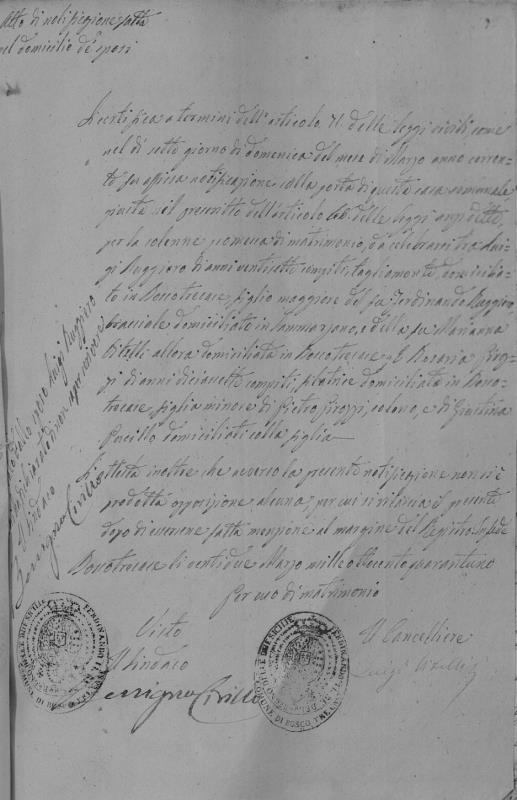 Atto di notificazione fatta
nel domicilio de' sposi
Si certifica a termini dell'articolo 71. delle leggi civili come
nel dì sette giorno di domenica del mese di Marzo anno corren-
te fu affissa notificazione colla porta di questa casa comunale
giusta nel prescritto dell'articolo 68. delle leggi anzidette,
per la solenne promessa di matrimonio, da celebrarsi tra Lui-
gi Ruggiero di anni ventisette compiti, tagliamonte, domicilia-
to in Boscotrecase, figlio maggiore del fu Ferdinando Ruggiero,
bracciale domiciliato in Sammarzano, e della fu Marianna
Vitelli allora domiciliata in Boscotrecase; e Rosaria
di anni diciassette compiti, filatrice domiciliata in Bosco-
trecase, figlia minore di Pietro, colono, e di Giustina
Pacillo domiciliati colla figlia
Si attesta inoltre che avverso la presente notificazione non si è
prodotta opposizione alcuna, per cui si rilascia il presente
dopo di essersene fatta menzione al margine del Registro. In fede
Boscotrecase li ventidue Marzo mille ottocento quarantuno
Per uso di matrimonio
Visto
Il Sindaco
Cirillo
Il Cancelliere
Luigi
per Luigi Ruggiero
di non saper scrivere
Il Sindaco
Cirillo
FERDINANDO II
COMUNE DI BOSCO TRE CASE